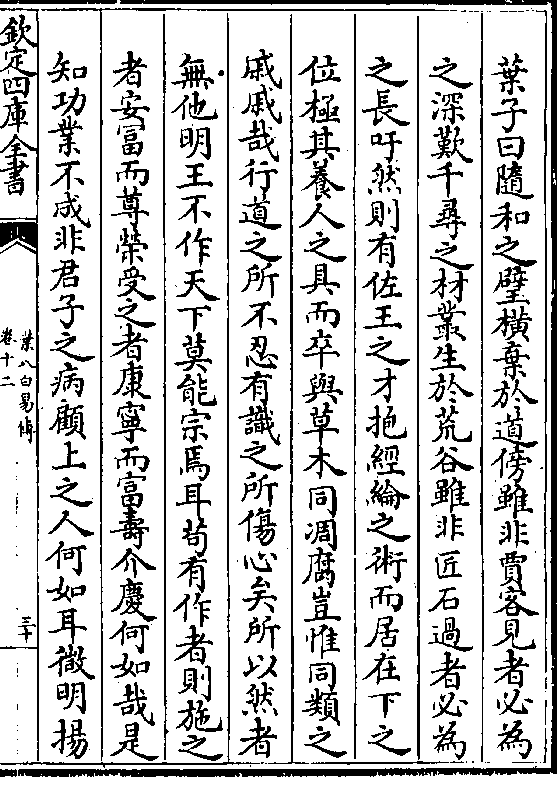 葉子曰隨和之璧橫棄於道傍雖非賈客見者必為
之深歎千尋之材叢生於荒谷雖非匠石過者必為
之長吁然則有佐王之才抱經綸之術而居在下之
位極其養人之具而卒與草木同凋腐豈惟同類之
戚戚哉行道之所不忍有識之所傷心矣所以然者
無他明王不作天下莫能宗焉耳苟有作者則施之
者安富而尊榮受之者康寧而富壽介慶何如哉是
知功業不成非君子之病顧上之人何如耳微明揚
欽定四庫全書
葉八白易傳
卷十二
三十